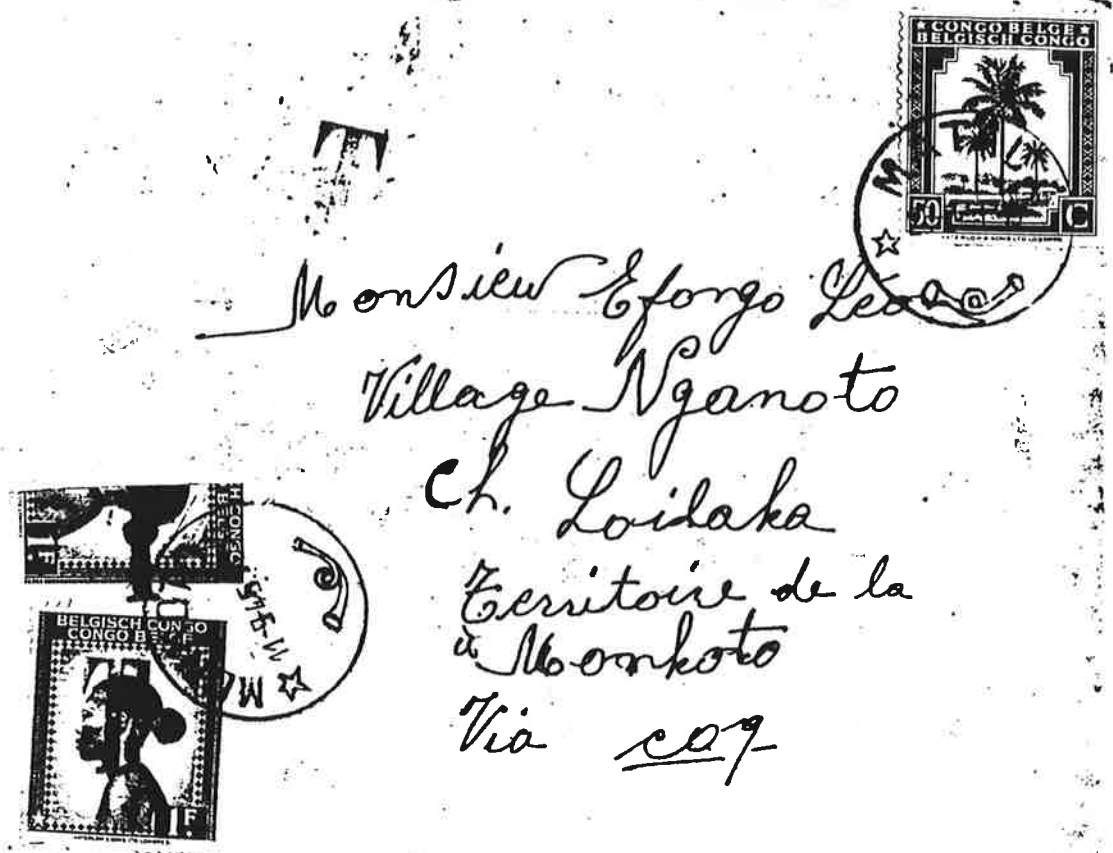 ★ CONGO BELGE ★
BELGISCH CONGO
50 C
T
Monsieur Efongo Léon
Village Nganoto
Ch. Loidaka
Territoire de la
à Monkoto
Via coq
BELGISCH CONGO
CONGO BELGE
1F.